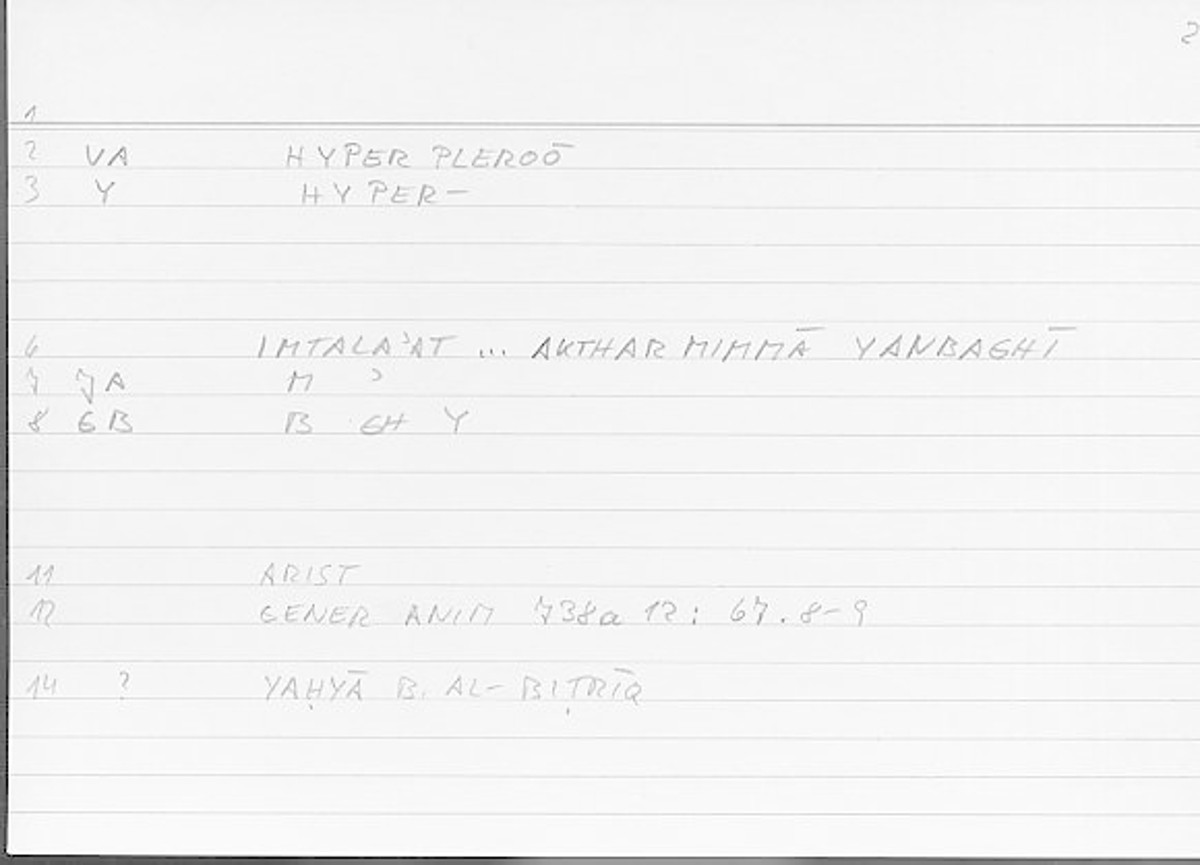 2
1
2 VA HYPER PLEROŌ
3 Y HYPER-
6 IMTALA'AT ... AKTHAR MIMMĀ YANBAGHĪ
7 7A M ʾ
8 6B B GH Y
11 ARIST
12 GENER ANIM 738a 12: 67.8-9
14 ? YAḤYĀ B. AL-BIṬRĪQ